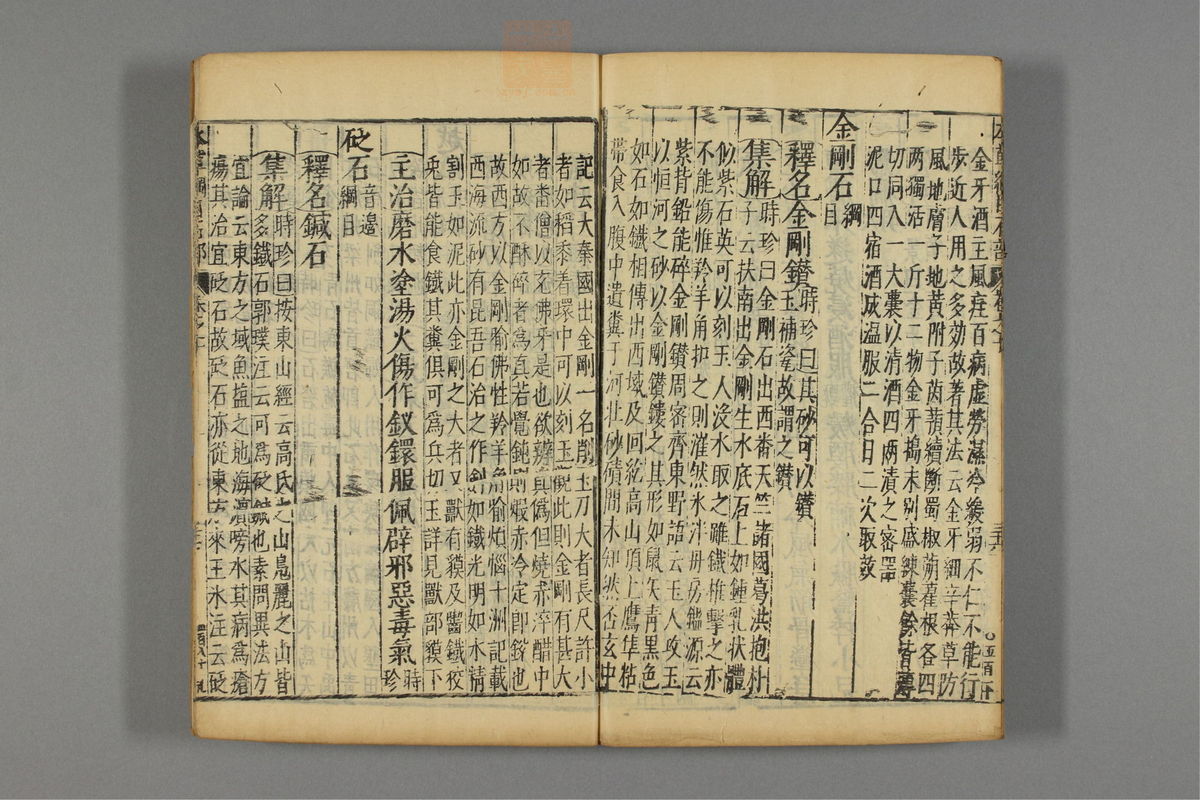 金牙酒主風疰百病虛勞濕冷緩弱不仁不能行
步近人用之多効故著其法云金牙細辛莽草防
風地膚子地黃附子茵蕷續斷蜀椒蒴藋根各四
兩獨活一斤十二物金牙搗末別盛練囊餘皆薄
切同入一大囊以清酒四兩漬之密器
泥口四宿酒成温服二合日二次取效
金剛石綱目
釋名金剛鑽時珍曰其砂可以鑽玉補瓷故謂之鑽
集解時珍曰金剛石出西番天竺諸國葛洪抱朴
子云扶南出金剛生水底石上如鍾乳状體
似紫石英可以刻玉人没水取之雖鐵椎擊之亦
不能傷惟羚羊角扣之則漼然氷泮丹房鑑源云
紫背鉛能碎金剛鑽周密齊東野語云玉人攻玉
以恒河之砂以金剛鑽鏤之其形如鼠矢青黑色
如石如鐵相傳出西域及回紇高山頂上鷹隼粘
帶食入腹中遺糞于河北砂磧間未知然否玄中
記云大秦國出金剛一名削玉刀大者長尺許小
者如稻黍着環中可以刻玉觀此則金剛有甚大
者番僧以充佛牙是也欲辨真僞但燒赤淬醋中
如故不酥碎者爲真若覺鈍則煅赤冷定即銳也
故西方以金剛喻佛性羚羊角喻煩惱十洲記載
西海流砂有昆吾石治之作劍如鐵光明如水精
割玉如泥此亦金剛之大者又獸有貘及齧鐵狡
兎皆能食鐵其糞俱可爲兵切玉詳見獸部貘下
主治磨水塗湯火傷作釵鐶服佩辟邪惡毒氣時珍
砭石音邊綱目
釋名鍼石
集解時珍曰按東山經云高氏之山鳧麗之山皆
多鐵石郭璞注云可爲砭鍼也素問異法方
宜論云東方之域魚鹽之地海濱傍水其病爲瘡
瘍其治宜砭石故砭石亦從東方來王氷注云砭